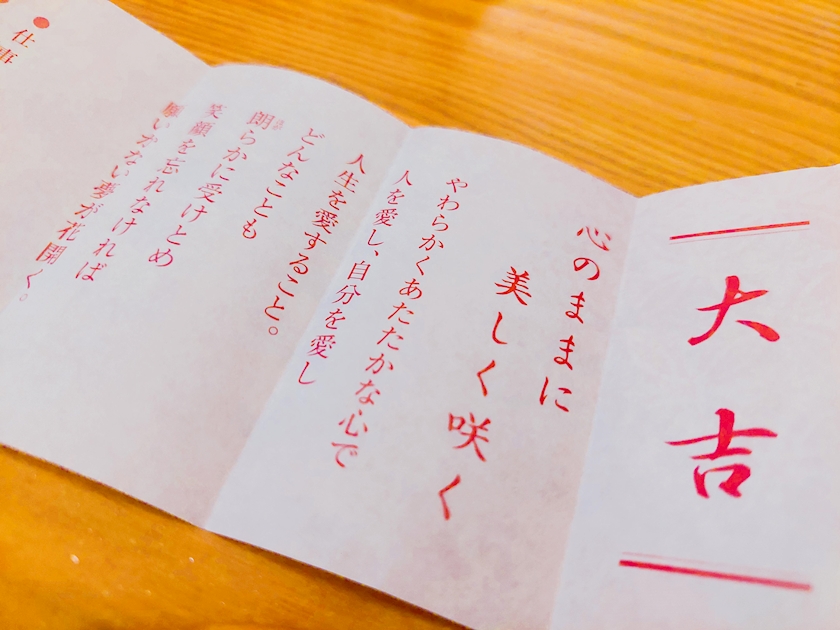 大吉
心のままに
美しく咲く
やわらかくあたたかな心で
人を愛し、自分を愛し
人生を愛すること。
どんなことも
朗らかに受けとめ
笑顔を忘れなければ
願いかない夢が花開く。
●仕事